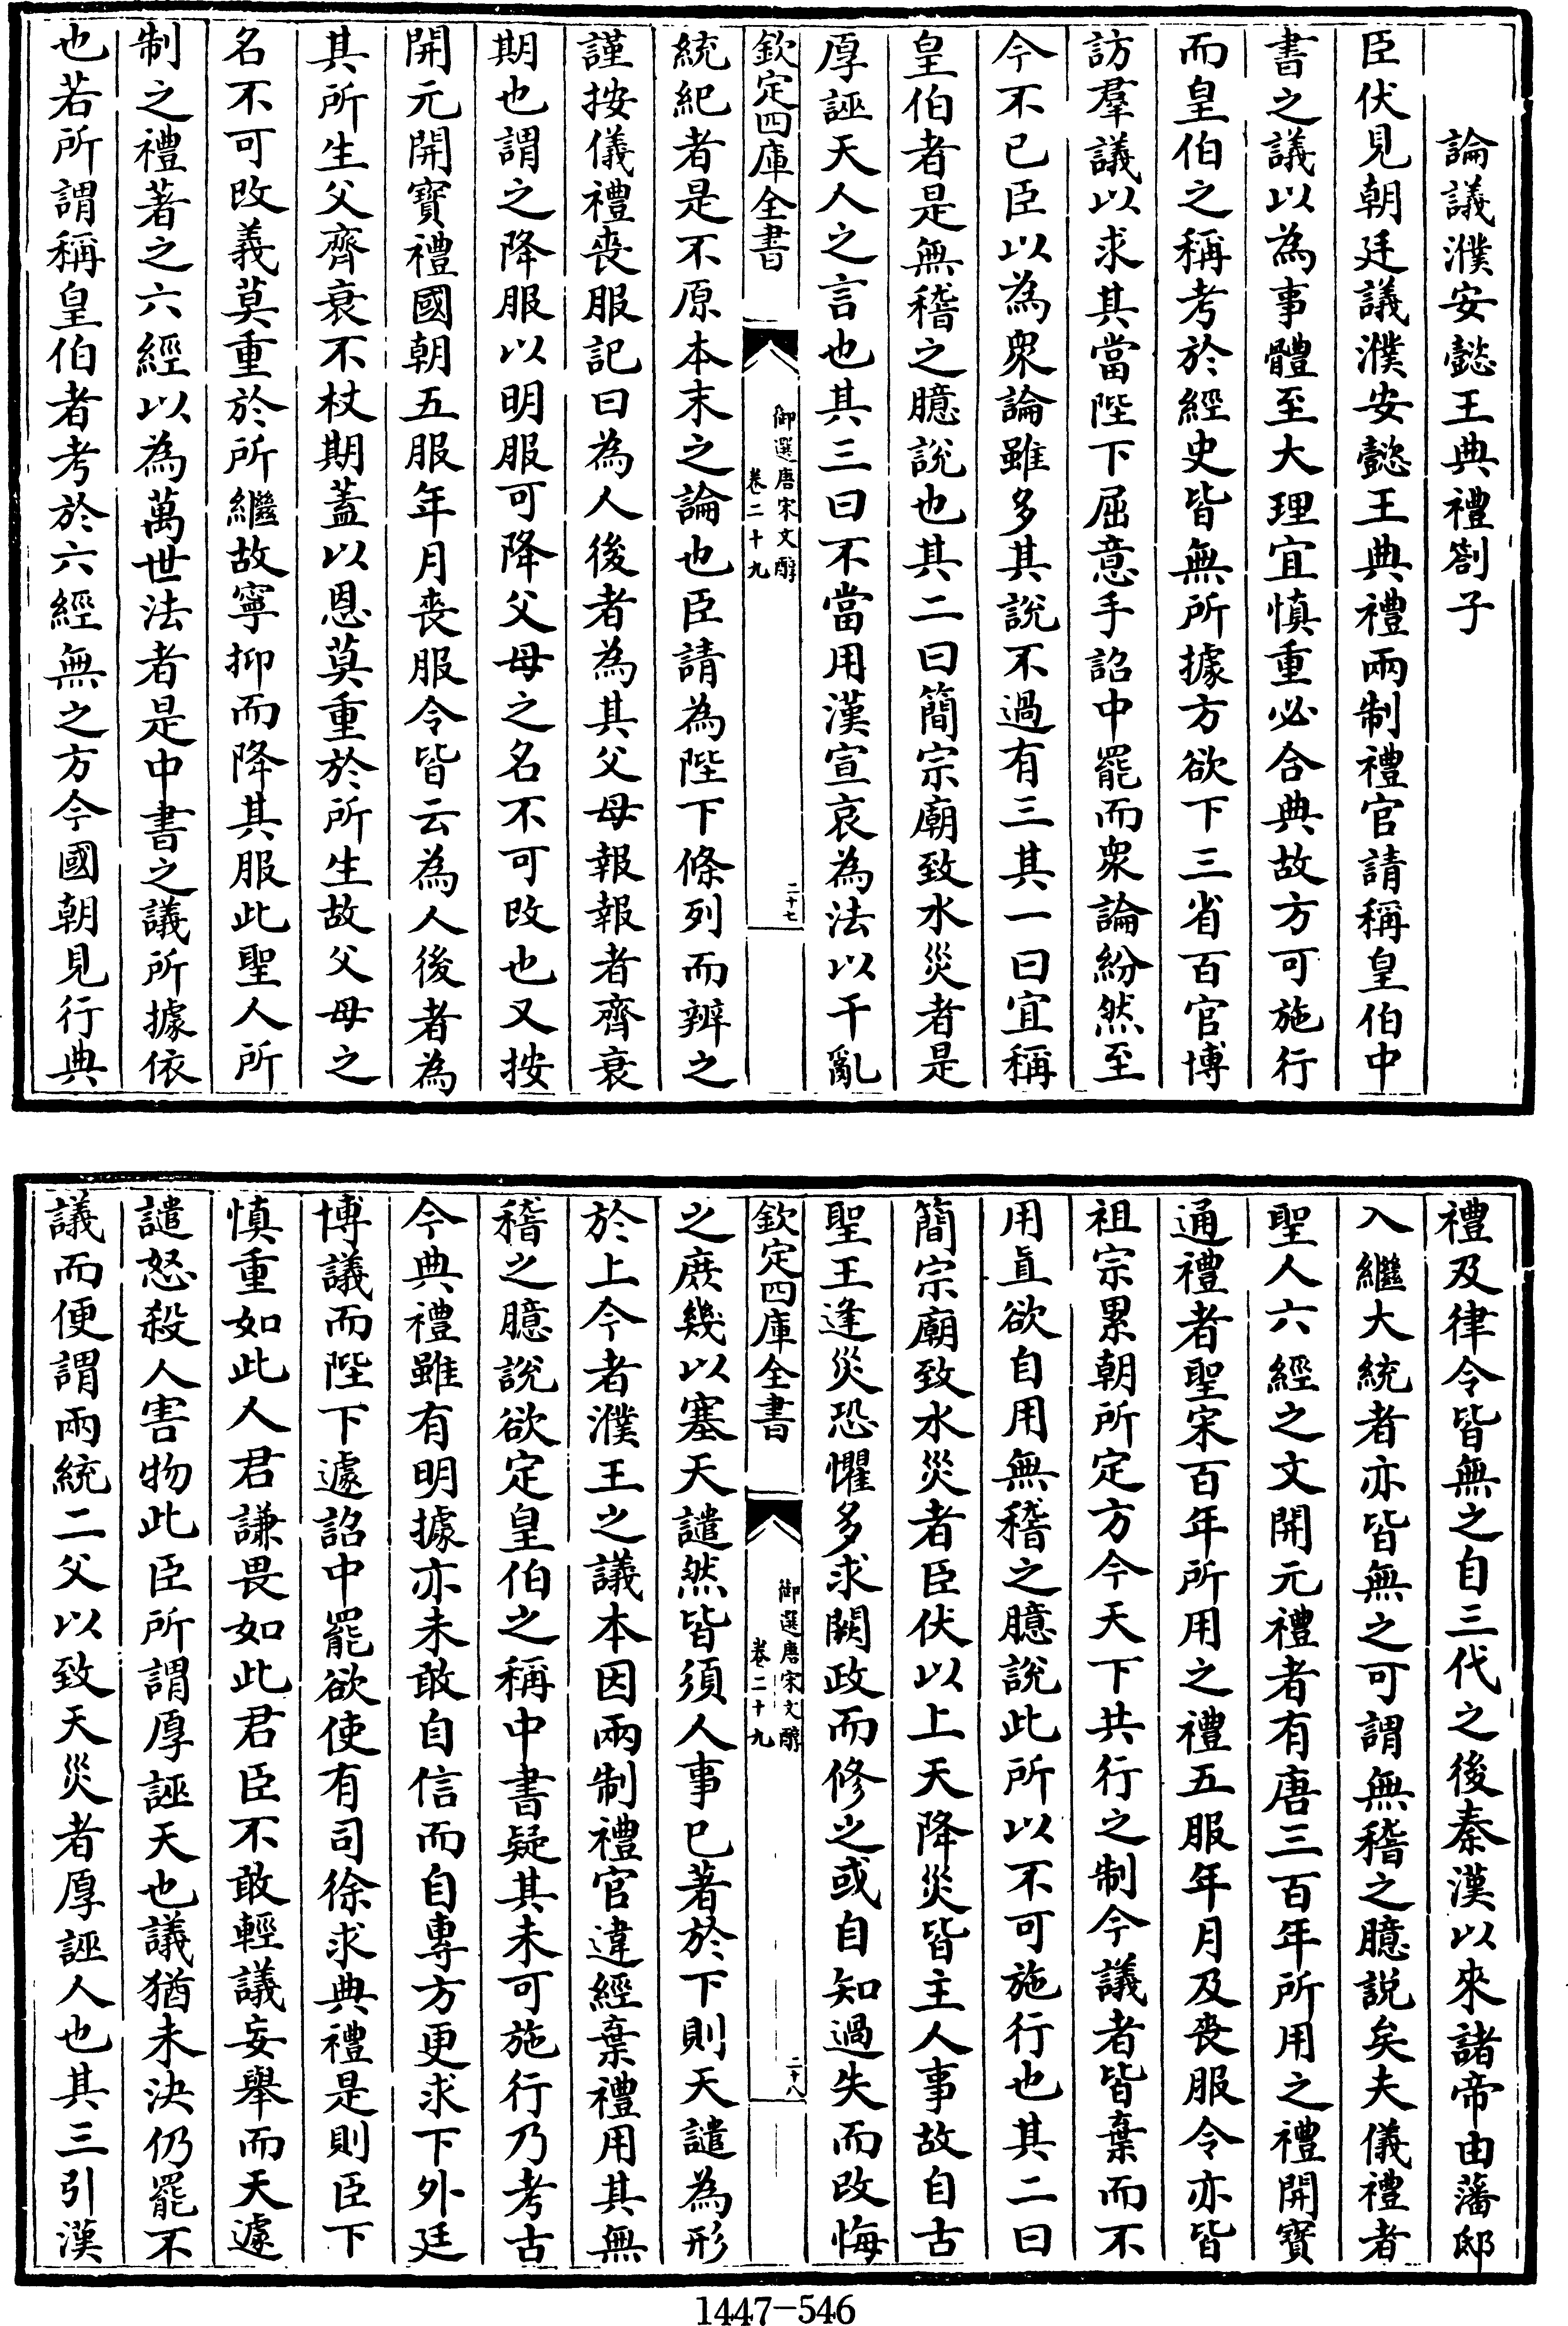 論議濮安懿王典禮劄子
臣伏見朝廷議濮安懿王典禮兩制禮官請稱皇伯中
書之議以為事體至大理宜慎重必合典故方可施行
而皇伯之稱考於經史皆無所據方欲下三省百官博
訪羣議以求其當陛下屈意手詔中罷而衆論紛然至
今不已臣以為衆論雖多其說不過有三其一曰宜稱
皇伯者是無稽之臆說也其二曰簡宗廟致水災者是
厚誣天人之言也其三曰不當用漢宣哀為法以干亂
欽定四庫全書
御選唐宋文醇
卷二十九
二十七
統紀者是不原本末之論也臣請為陛下條列而辨之
謹按儀禮喪服記曰為人後者為其父母報報者齊衰
期也謂之降服以明服可降父母之名不可改也又按
開元開寶禮國朝五服年月喪服令皆云為人後者為
其所生父齊衰不杖期蓋以恩莫重於所生故父母之
名不可改義莫重於所繼故寧抑而降其服此聖人所
制之禮著之六經以為萬世法者是中書之議所據依
也若所謂稱皇伯者考於六經無之方今國朝見行典
禮及律令皆無之自三代之後秦漢以來諸帝由藩邸
入繼大統者亦皆無之可謂無稽之臆説矣夫儀禮者
聖人六經之文開元禮者有唐三百年所用之禮開寶
通禮者聖宋百年所用之禮五服年月及喪服令亦皆
祖宗累朝所定方今天下共行之制今議者皆棄而不
用直欲自用無稽之臆說此所以不可施行也其二曰
簡宗廟致水災者臣伏以上天降災皆主人事故自古
聖王逢災恐懼多求闕政而修之或自知過失而改悔
欽定四庫全書
御選唐宋文醇
卷二十九
二十八
之庶幾以塞天譴然皆須人事已著於下則天譴為形
於上今者濮王之議本因兩制禮官違經棄禮用其無
稽之臆說欲定皇伯之稱中書疑其未可施行乃考古
今典禮雖有明據亦未敢自信而自專方更求下外廷
博議而陛下遽詔中罷欲使有司徐求典禮是則臣下
慎重如此人君謙畏如此君臣不敢輕議妄舉而天遽
譴怒殺人害物此臣所謂厚誣天也議猶未決仍罷不
議而便謂兩統二父以致天災者厚誣人也其三引漢
1447-546